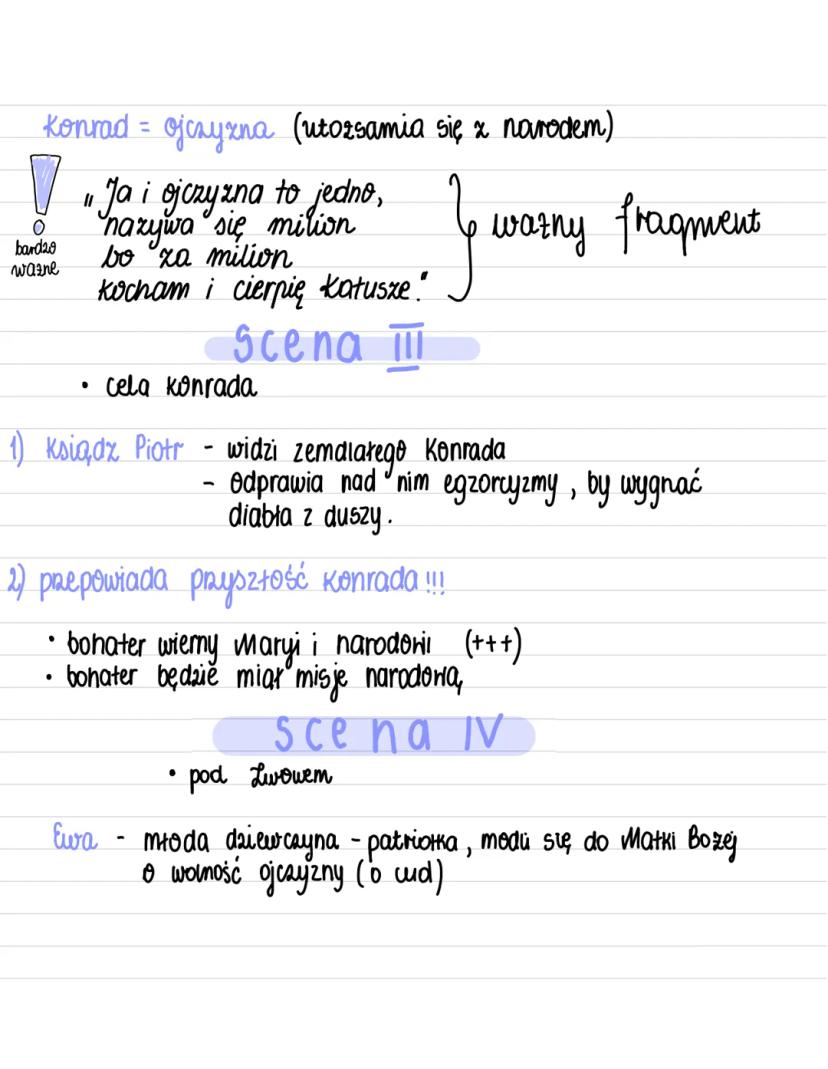 Konrad = ojczyzna (utożsamia się z narodem)
bardzo
ważne
„Ja i ojczyzna to jedno,
nazywa się milion
bo za milion
kocham i cierpię katusze."
ważny fragment
Scena III
• cela Konrada
1) Ksiądz Piotr - widzi zemdlałego Konrada
- odprawia nad nim egzorcyzmy, by wygnać
diabła z duszy.
2) przepowiada przyszłość Konrada !!!
• bohater wierny Maryi i narodowi (+++)
• bohater będzie miał misje narodową
Scena IV
• pod Lwowem
Ewa - młoda dziewczyna - patriotka, modli się do Matki Bożej
o wolność ojczyzny (o cud)